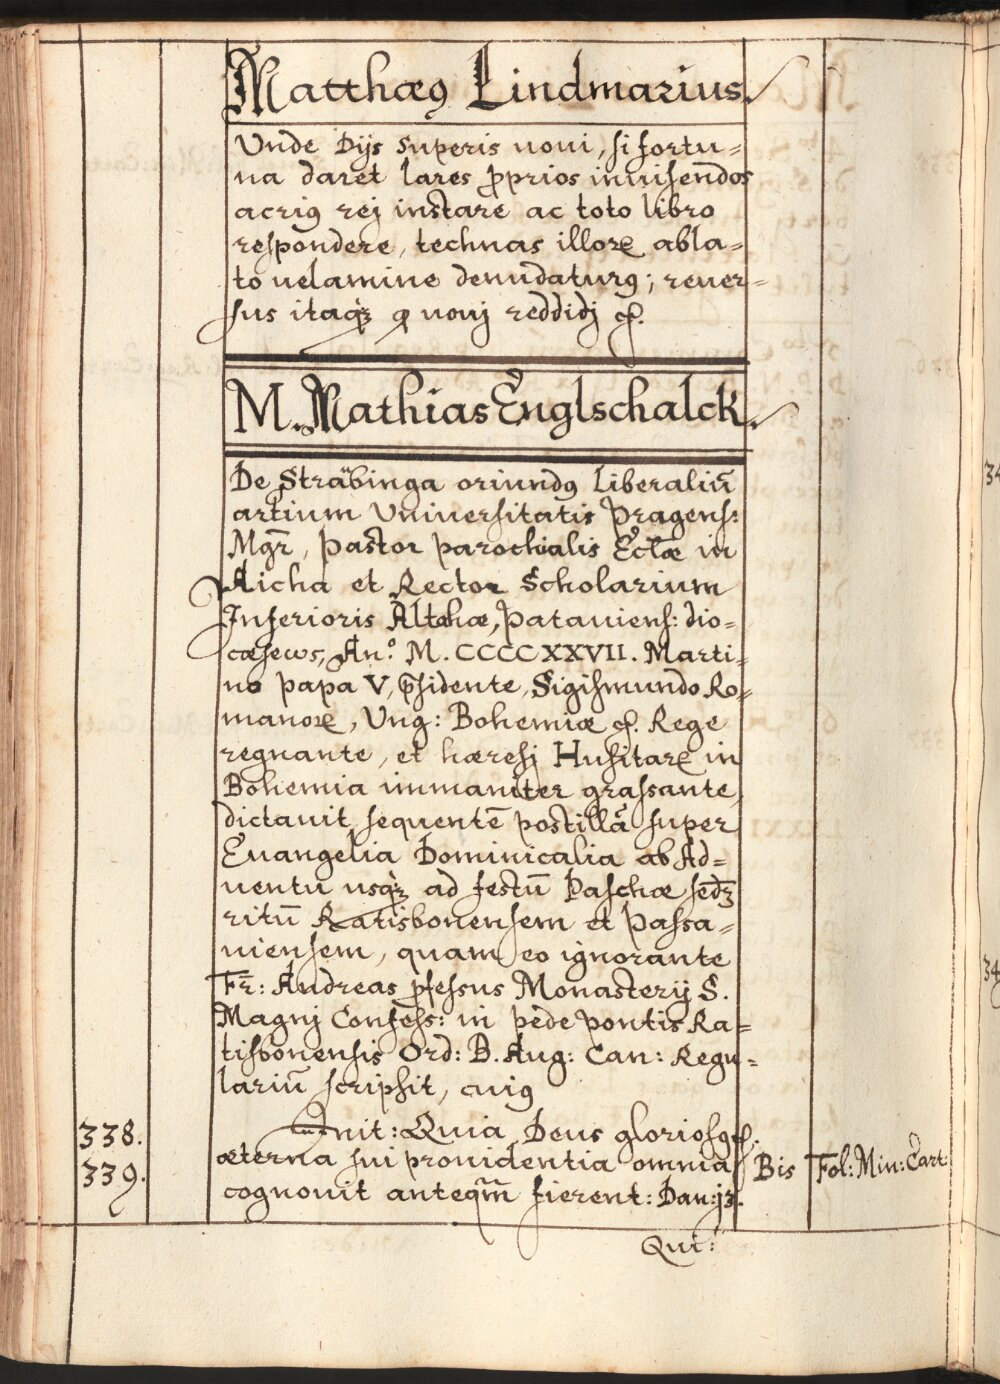 Matthæ9 Lindmarius.
Unde Dijs superis noui, si fortu=
na daret lares ꝓprios inuisendos
acri9 rej instare ac toto libro
respondere, technas illoꝝ abla=
to uelamine denudatur9; reuer=
sus itaqꝫ nouj reddidj
M. Mathias Englschalck.
De Sträbinga oriund9 Liberaliū
artium Uniuersitatis Pragens:
Mgr̄, Pastor parochialis Eccl̄æ in
Aicha et Rector Scholarium
Inferioris Altahæ, Patauiens: dio=
cæsews, An.º M. CCCCXXVII. Marti=
no Papa V, p̄sidente, Sigismundo Ro=
manoꝝ, Ung: Bohemiæ ꝛc. Rege
regnante, et hæresi Husitaꝝ in
Bohemia immaniter grassante,
dictauit sequentē postillā super
Euangelia Dominicalia ab Ad=
uentu usqꝫ ad festū Paschæ sēdꝫ
ritū Ratisbonensem et Passa=
uiensem, quam eo ignorante
Fr̄: Andreas ꝓfessus Monasterij S.
Magnj Confess: in pede pontis Ra=
tisbonensis Ord: B. Aug: Can: Regu=
lariū scripsit, cui9
338. Init: Quia Deus glorios9 ꝛc.
339. æterna sui prouidentia omnia Bis Fol: Min: Cart:
cognouit anteqm̄ fierent: Dan: 13.
Qui:
34
34